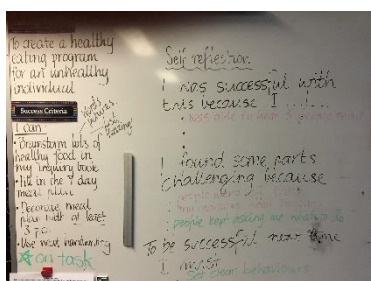 To create a healthy
eating program
for an unhealthy
individual
Success Criteria
I can:
Brainstorm lots of
healthy food in
my inquiry book
Fill in the 7 day
meal plan
Decorate meal
plan with at least
3 p.c.
Use neat handwriting
on task
Self reflection
I was successful with
this because I ......
was able to
I found some parts
challenging because
people were
people kept asking me what to do
To be successful next time
I must
Set clear behaviours